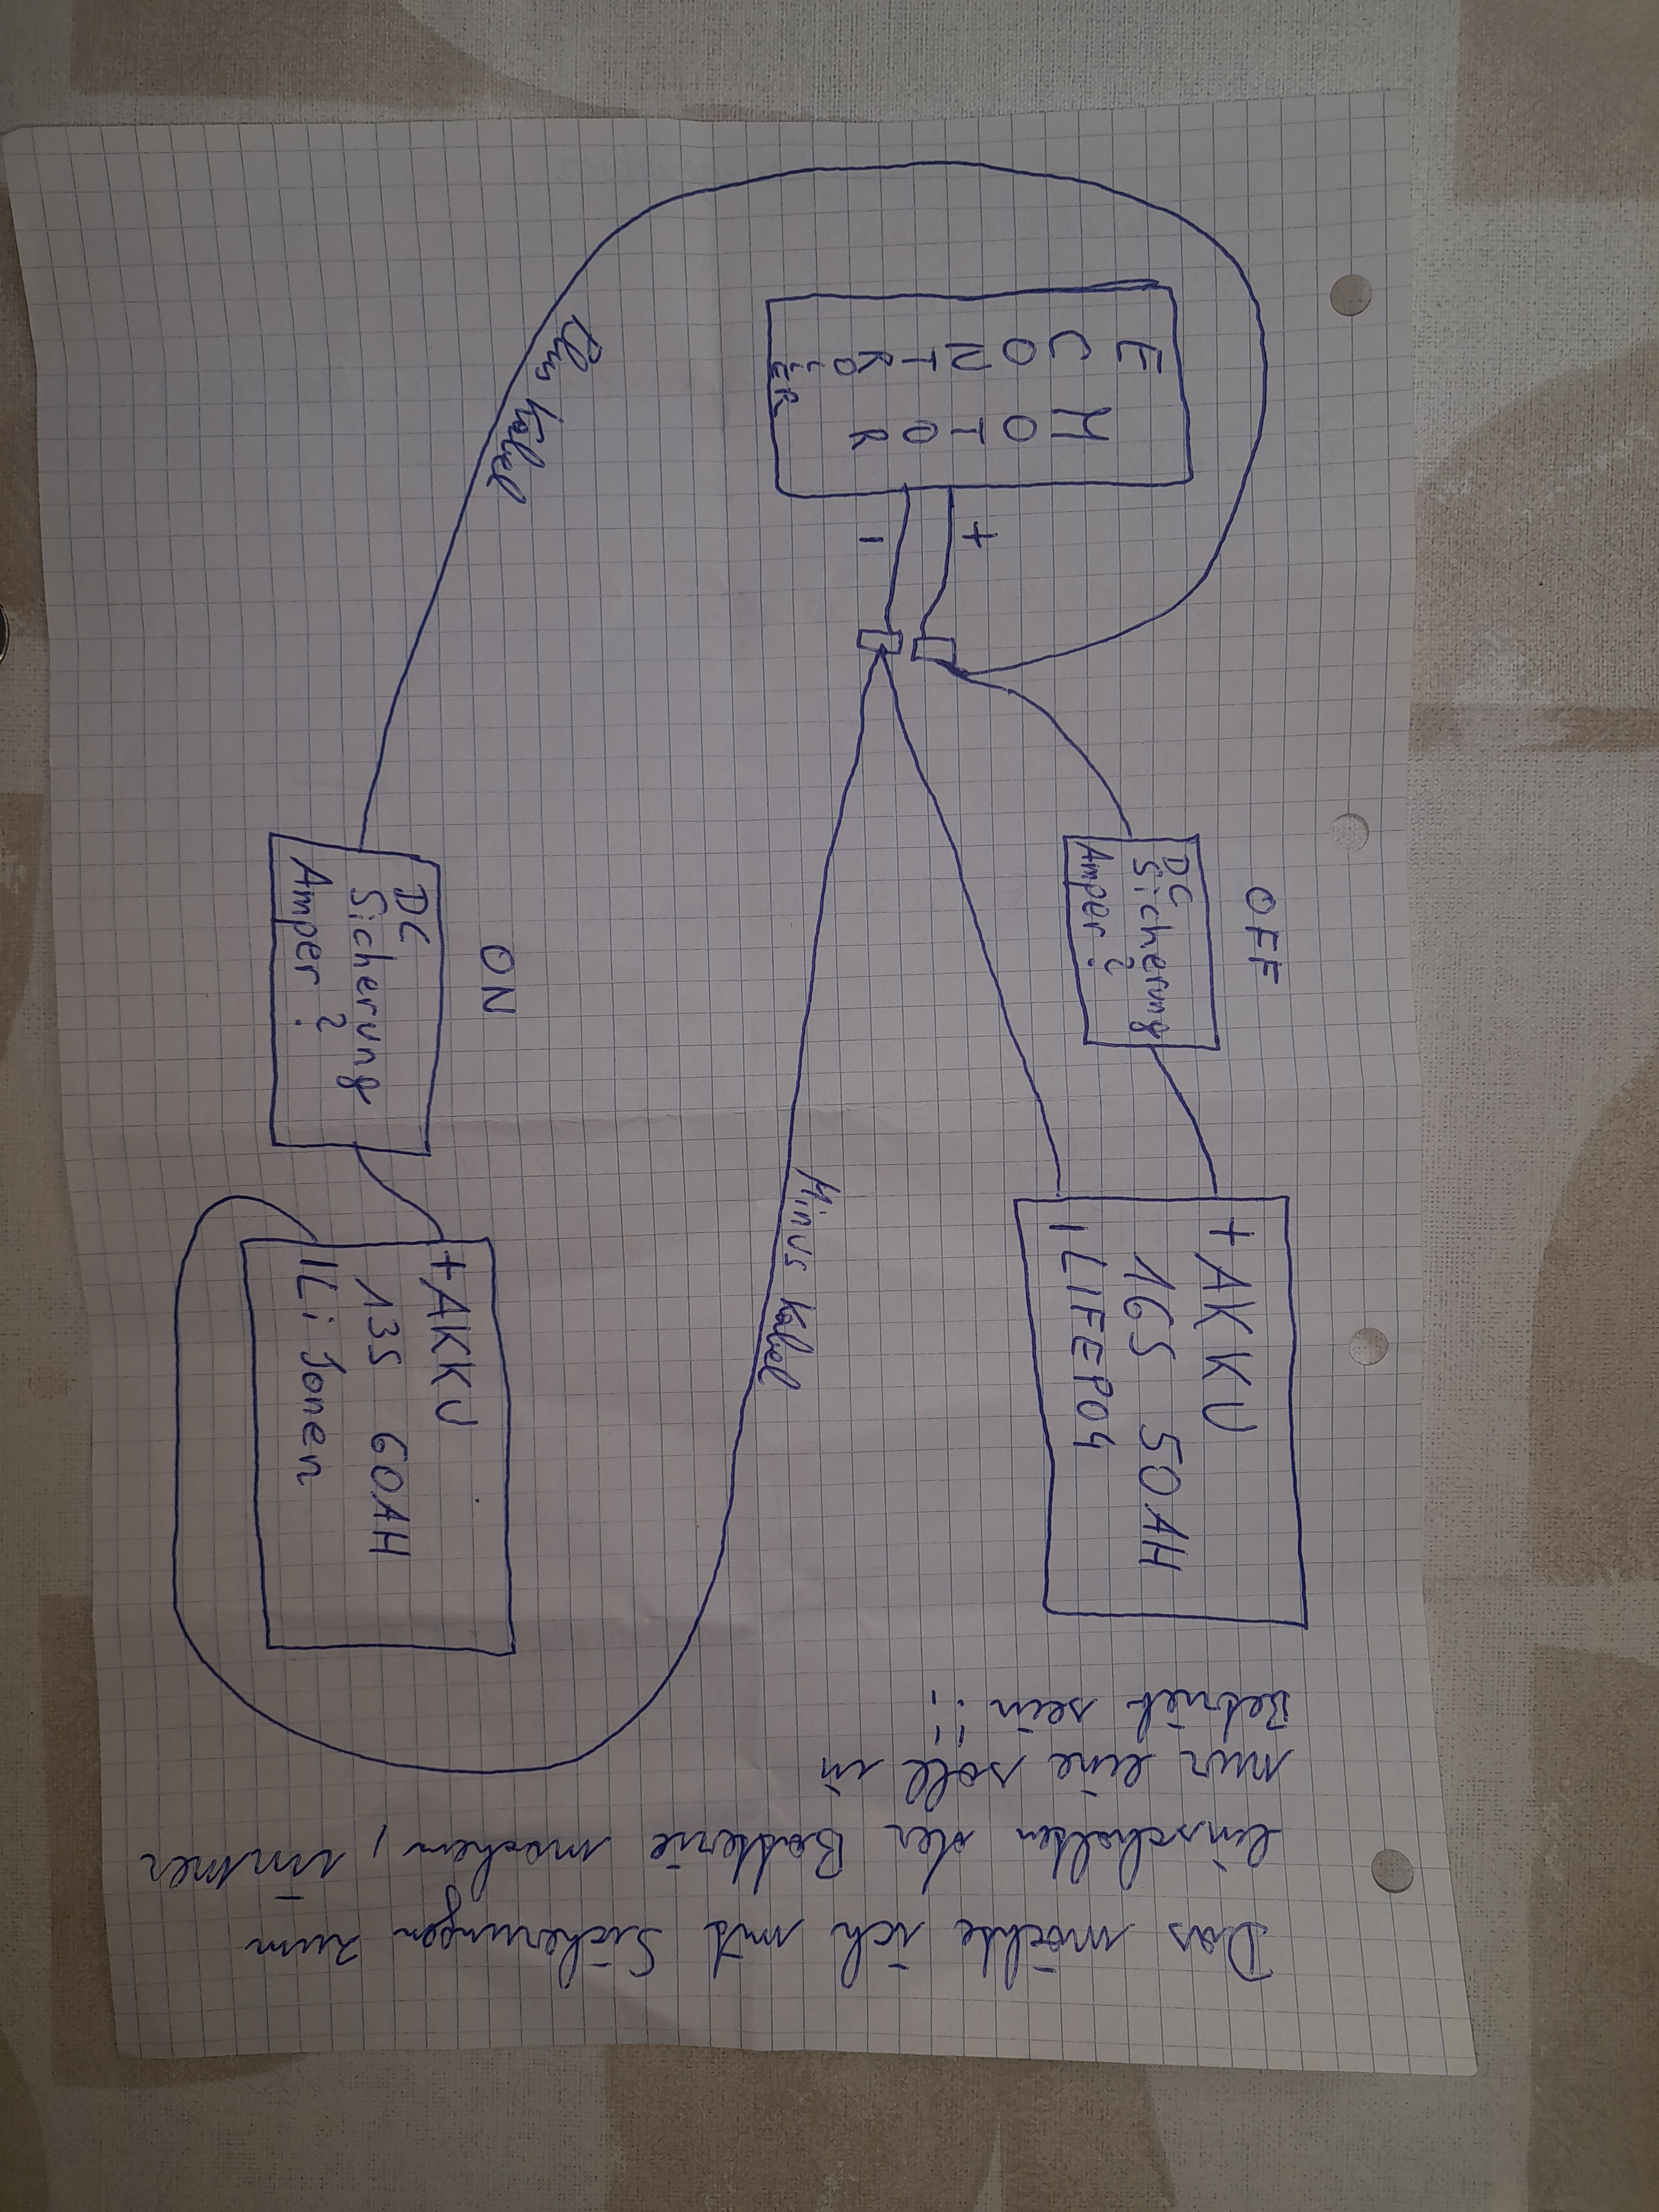 E MOTOR
CONTROLLER
+
-
Plus Kabel
OFF
DC
Sicherung
Amper ?
ON
DC
Sicherung
Amper ?
Minus Kabel
+AKKU
16S 50AH
- LIFEPO4
+AKKU
13S 60AH
- Li Jonen
Das möchte ich mit Sicherungen zum
einschalten der Batterie machen, immer
nur eine soll in
Betrieb sein !!